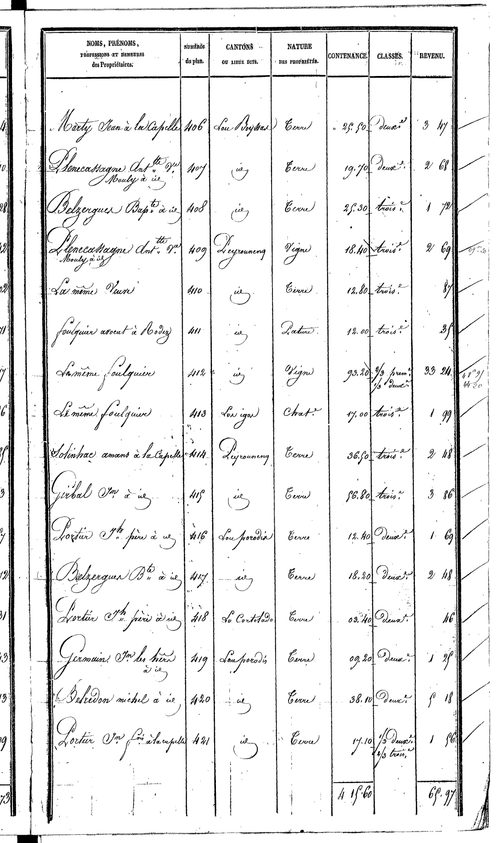 NOMS, PRÉNOMS, PROFESSIONS ET DEMEURES des Propriétaires. NUMÉROS du plan. CANTONS OU LIEUX DITS. NATURE DES PROPRIÉTÉS. CONTENANCE. CLASSES. REVENU.
Marty Jean à la Capelle 406 Lou Terre 25.50 Deux.e 3 47
Plenecassagne Ant.tte V.ve 407 id Terre 19.70 Deux.e 2 68
Mouly à id
Belzergues Bap.te à id 408 id Terre 25.30 trois.e 1 72
Plenecassagne Ant.tte V.ve 409 Peyrouneng Vigne 18.40 trois.e 2 69
Mouly à id
La même Veuve 410 id Terre 12.80 trois.e 87
foulquier avocat à Rodez 411 id Pature 12.00 trois.e 35
Le même foulquier 412 id Vigne 93.20 2/3 prem.e 33 24
1/3 deux.e
Le même foulquier 413 Los igos Chat.e 17.00 trois.e 1 99
Solinhac amans à la Capelle 414 Peyrouneng Terre 36.50 trois.e 2 48
Girbal J.n à id 415 id Terre 56.80 trois.e 3 86
Portier J.ph père à id 416 Lou porodis Terre 12.40 Deux.e 1 69
Belzergues B.te à id 417 id Terre 18.20 Deux.e 2 48
Portier J.ph père à id 418 Terre 03.40 Deux.e 46
Germain J.n les héros 419 Lou porodis Terre 09.20 Deux.e 1 25
à id
michel à id 420 id Terre 38.10 Deux.e 5 18
Portier J.n à la capelle 421 id Terre 17.10 1/3 deux.e 1 56
2/3 trois.e
4 15.60 65.97